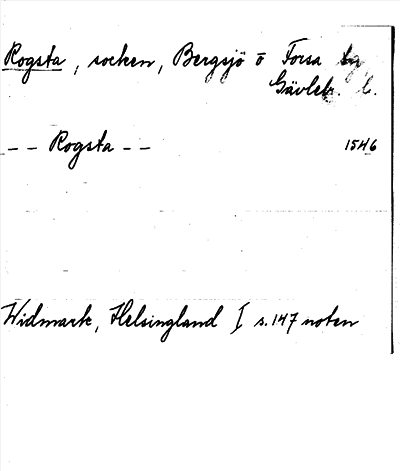 Rogsta, socken, Bergsjö o Forsa tg
Gävleb. l.
-- Rogsta -- 1546
Widmark, Helsingland I s. 147 noten